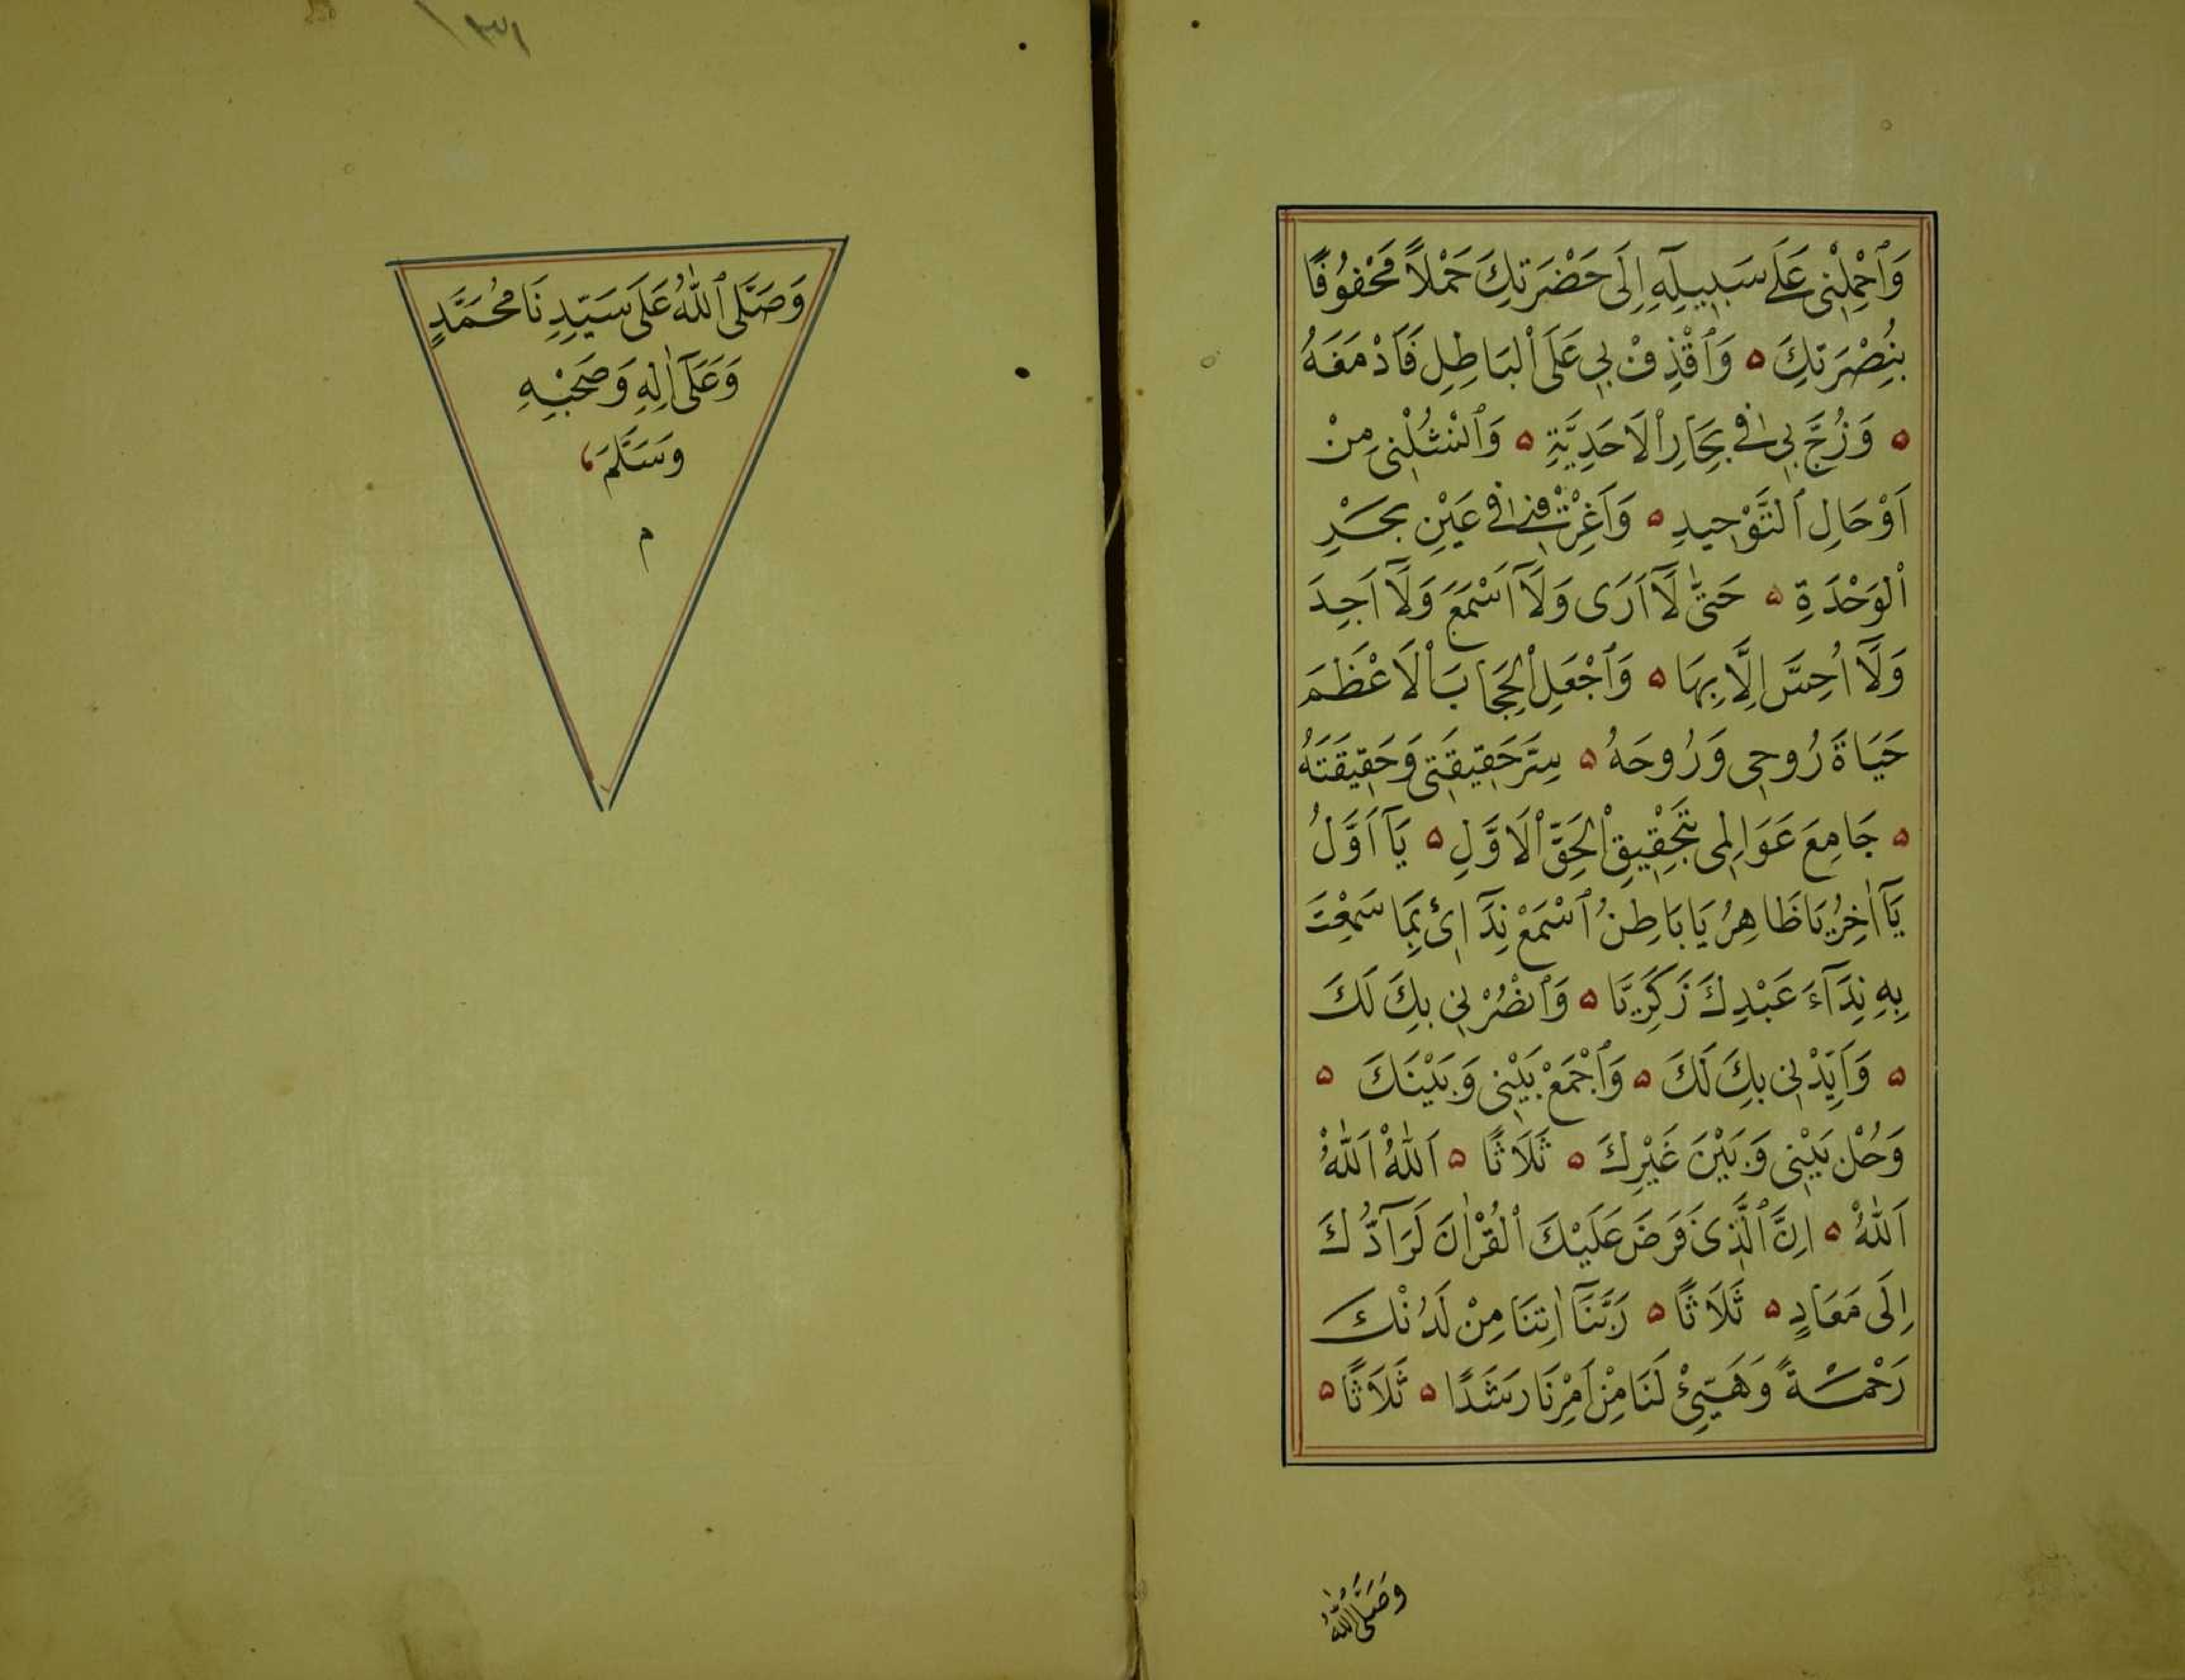 وَٱحْمِلْنِى عَلَى سَبِيلِهِٓ اِلَى حَضْرَتِكَ حَمْلاً مَحْفُوفًا
بِنُصْرَتِكَ ۵ وَٱقْذِفْ بِى عَلَى ٱلْبَاطِلِ فَاَدْمَغَهُ
۵ وَزُجَّ بِى فِى بِحَارِ ٱلْاَحَدِيَّةِ ۵ وَٱنْشُلْنِى مِنْ
اَوْحَالِ ٱلتَّوْحِيدِ ۵ وَاَغْرِقْنِى فِى عَيْنِ بَحْرِ
ٱلْوَحْدَةِ ۵ حَتّٰى لَٓا اَرَى وَلَٓا اَسْمَعَ وَلَٓا اَجِدَ
وَلَٓا اُحِسَّ اِلَّا بِهَا ۵ وَٱجْعَلِ ٱلْحِجَابَ ٱلْاَعْظَمَ
حَيَاةَ رُوحِى وَرُوحَهُ ۵ سِرَّ حَقِيقَتِى وَحَقِيقَتَهُ
۵ جَامِعَ عَوَالِمِى بِتَحْقِيقِ ٱلْحَقِّ ٱلْاَوَّلِ ۵ يَٓا اَوَّلُ
يَٓا اٰخِرُ يَا ظَاهِرُ يَا بَاطِنُ ٱسْمَعْ نِدَٓائِى بِمَا سَمِعْتَ
بِهِ نِدَٓاءَ عَبْدِكَ زَكَرِيَّا ۵ وَٱنْصُرْنِى بِكَ لَكَ
۵ وَاَيِّدْنِى بِكَ لَكَ ۵ وَٱجْمَعْ بَيْنِى وَبَيْنَكَ ۵
وَحُلْ بَيْنِى وَبَيْنَ غَيْرِكَ ۵ ثَلَاثًا ۵ اَللّٰهُ اَللّٰهُ
اَللّٰهُ ۵ اِنَّ ٱلَّذِى فَرَضَ عَلَيْكَ ٱلْقُرْاٰنَ لَرَٓادُّكَ
اِلَى مَعَادٍ ۵ ثَلَاثًا ۵ رَبَّنَٓا اٰتِنَا مِنْ لَدُنْكَ
رَحْمَةً وَهَيِّئْ لَنَا مِنْ اَمْرِنَا رَشَدًا ۵ ثَلَاثًا ۵
وَصَلَّى اللّٰهُ
وَصَلَّى ٱللّٰهُ عَلَى سَيِّدِنَا مُحَمَّدٍ
وَعَلَٓى اٰلِهِ وَصَحْبِهِ
وَسَلَّمَ
م